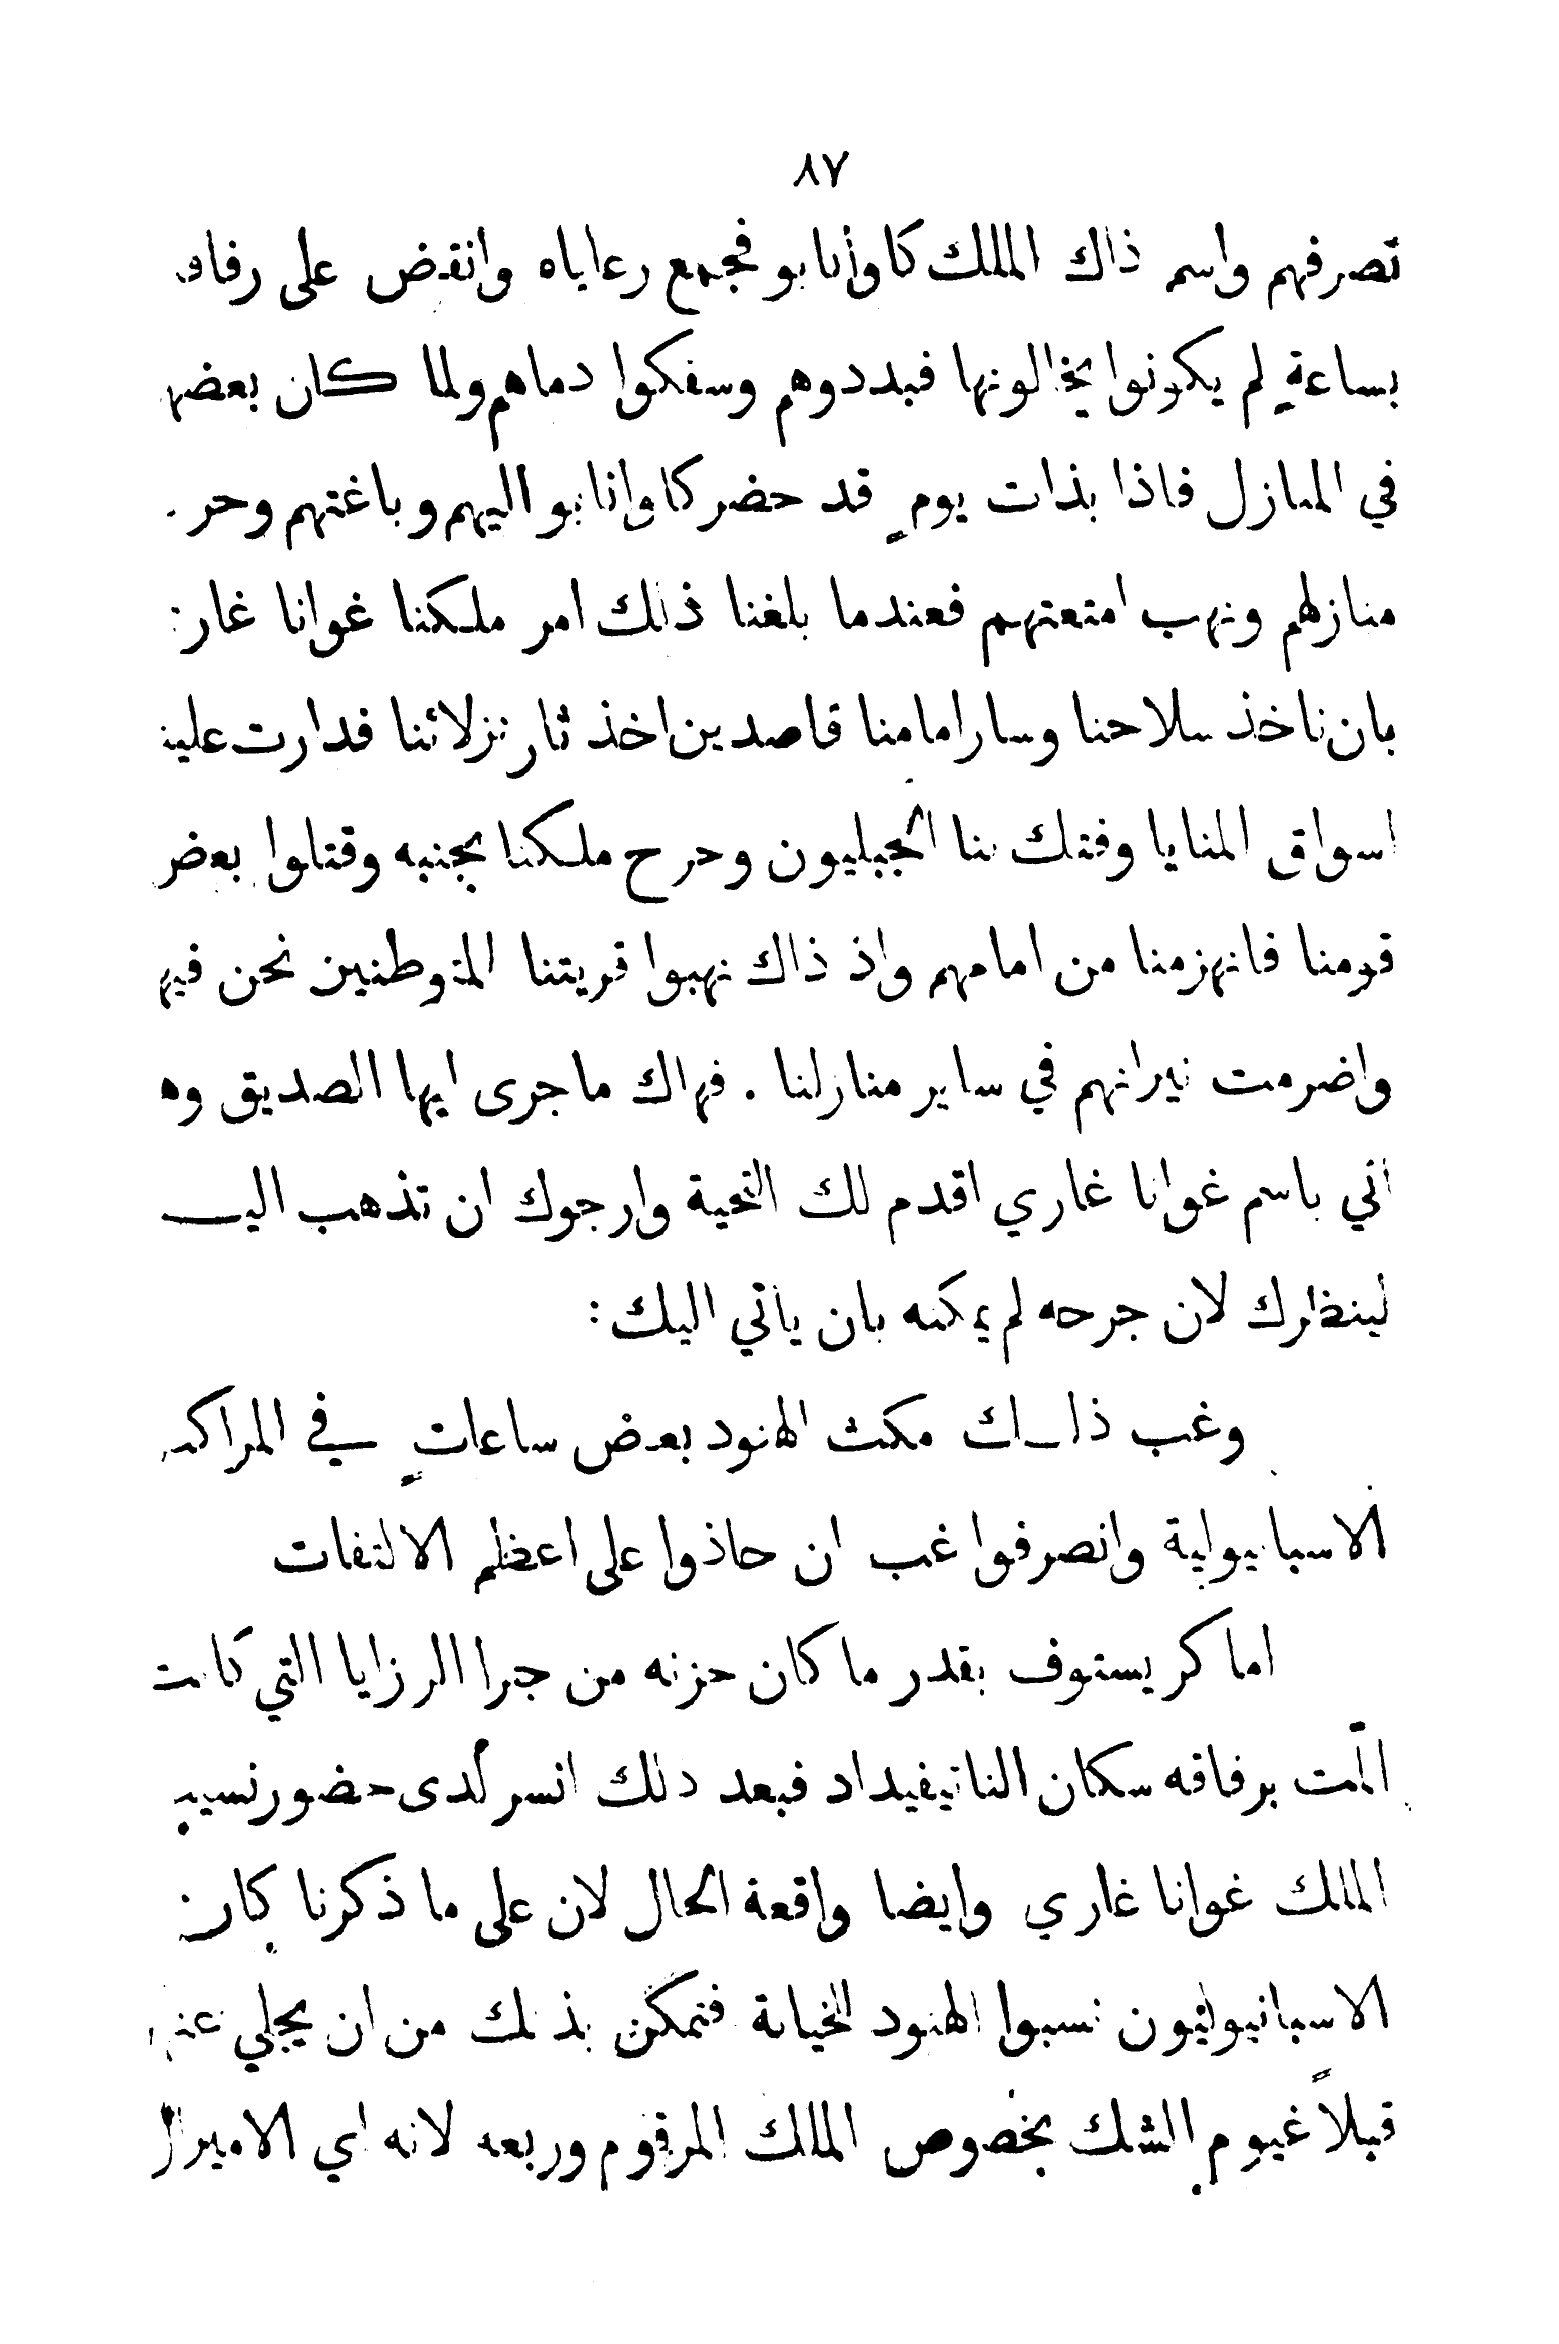 ٨٧
تصرفهم واسم ذاك الملك كاوأنابو فجمع رعاياه وانقض على
بساعةٍ لم يكونوا يخالونها فبددوهم وسفكوا دماهم ولما كان
في المنازل فاذا بذات يومٍ قد حضر كاوانابو اليهم وباغتهم
منازلهم ونهب امتعتهم فعندما بلغنا ذلك امر ملكنا غوانا
بان ناخذ سلاحنا وسار امامنا قاصدين اخذ ثار نزلائنا فدارت
اسواق المنايا وفتك بنا الجبليون وجرح ملكنا بجنبه وقتلوا بعض
قومنا فانهزمنا من امامهم واذ ذاك نهبوا قريتنا المتوطنين نحن
واضرمت نيرانهم في ساير منازلنا . فهاك ما جرى ايها الصديق
انني باسم غوانا غاري اقدم لك التحية وارجوك ان تذهب
لينظرك لان جرحه لم يمكنه بان ياتي اليك :
وغب ذلك مكث الهنود بعض ساعاتٍ في
الاسبانيولية وانصرفوا غب ان حاذوا على اعظم الالتفات
اما كريستوف بقدر ما كان حزنه من جرا الرزايا التي كانت
المّت برفاقه سكان الناتيفيداد فبعد ذلك انسر لدى حضور نسيب
الملك غوانا غاري وايضا واقعة الحال لان على ما ذكرنا كان
الاسبانيوليون نسبوا الهنود للخيانة فتمكن بذلك من ان يجلي
قبلاً غيوم الشك بخصوص الملك المرقوم وربعه لانه اي الاميرال